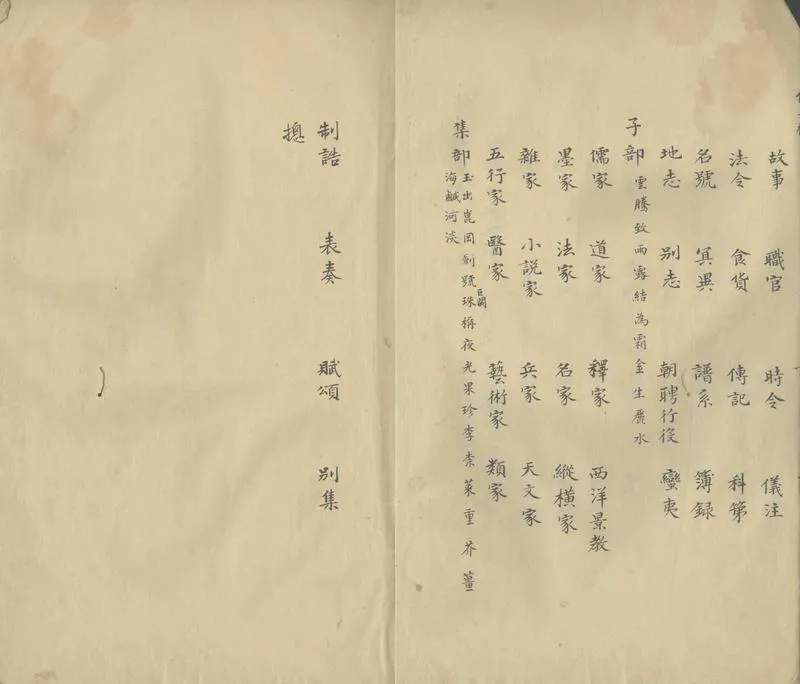 故事　職官　時令　儀注
法令　食貨　傳記　科第
名號　冥異　譜系　簿錄
地志　別志　朝聘行役　蠻夷
子部 雲騰致雨露結為霜金生麗水
儒家　道家　釋家　西洋景教
墨家　法家　名家　縱橫家
雜家　小説家　兵家　天文家
五行家　醫家　藝術家　類家
集部 玉出崑岡劍號巨闕珠稱夜光果珍李柰菜重芥薑
海鹹河淡
制誥　表奏　賦頌　別集
摠